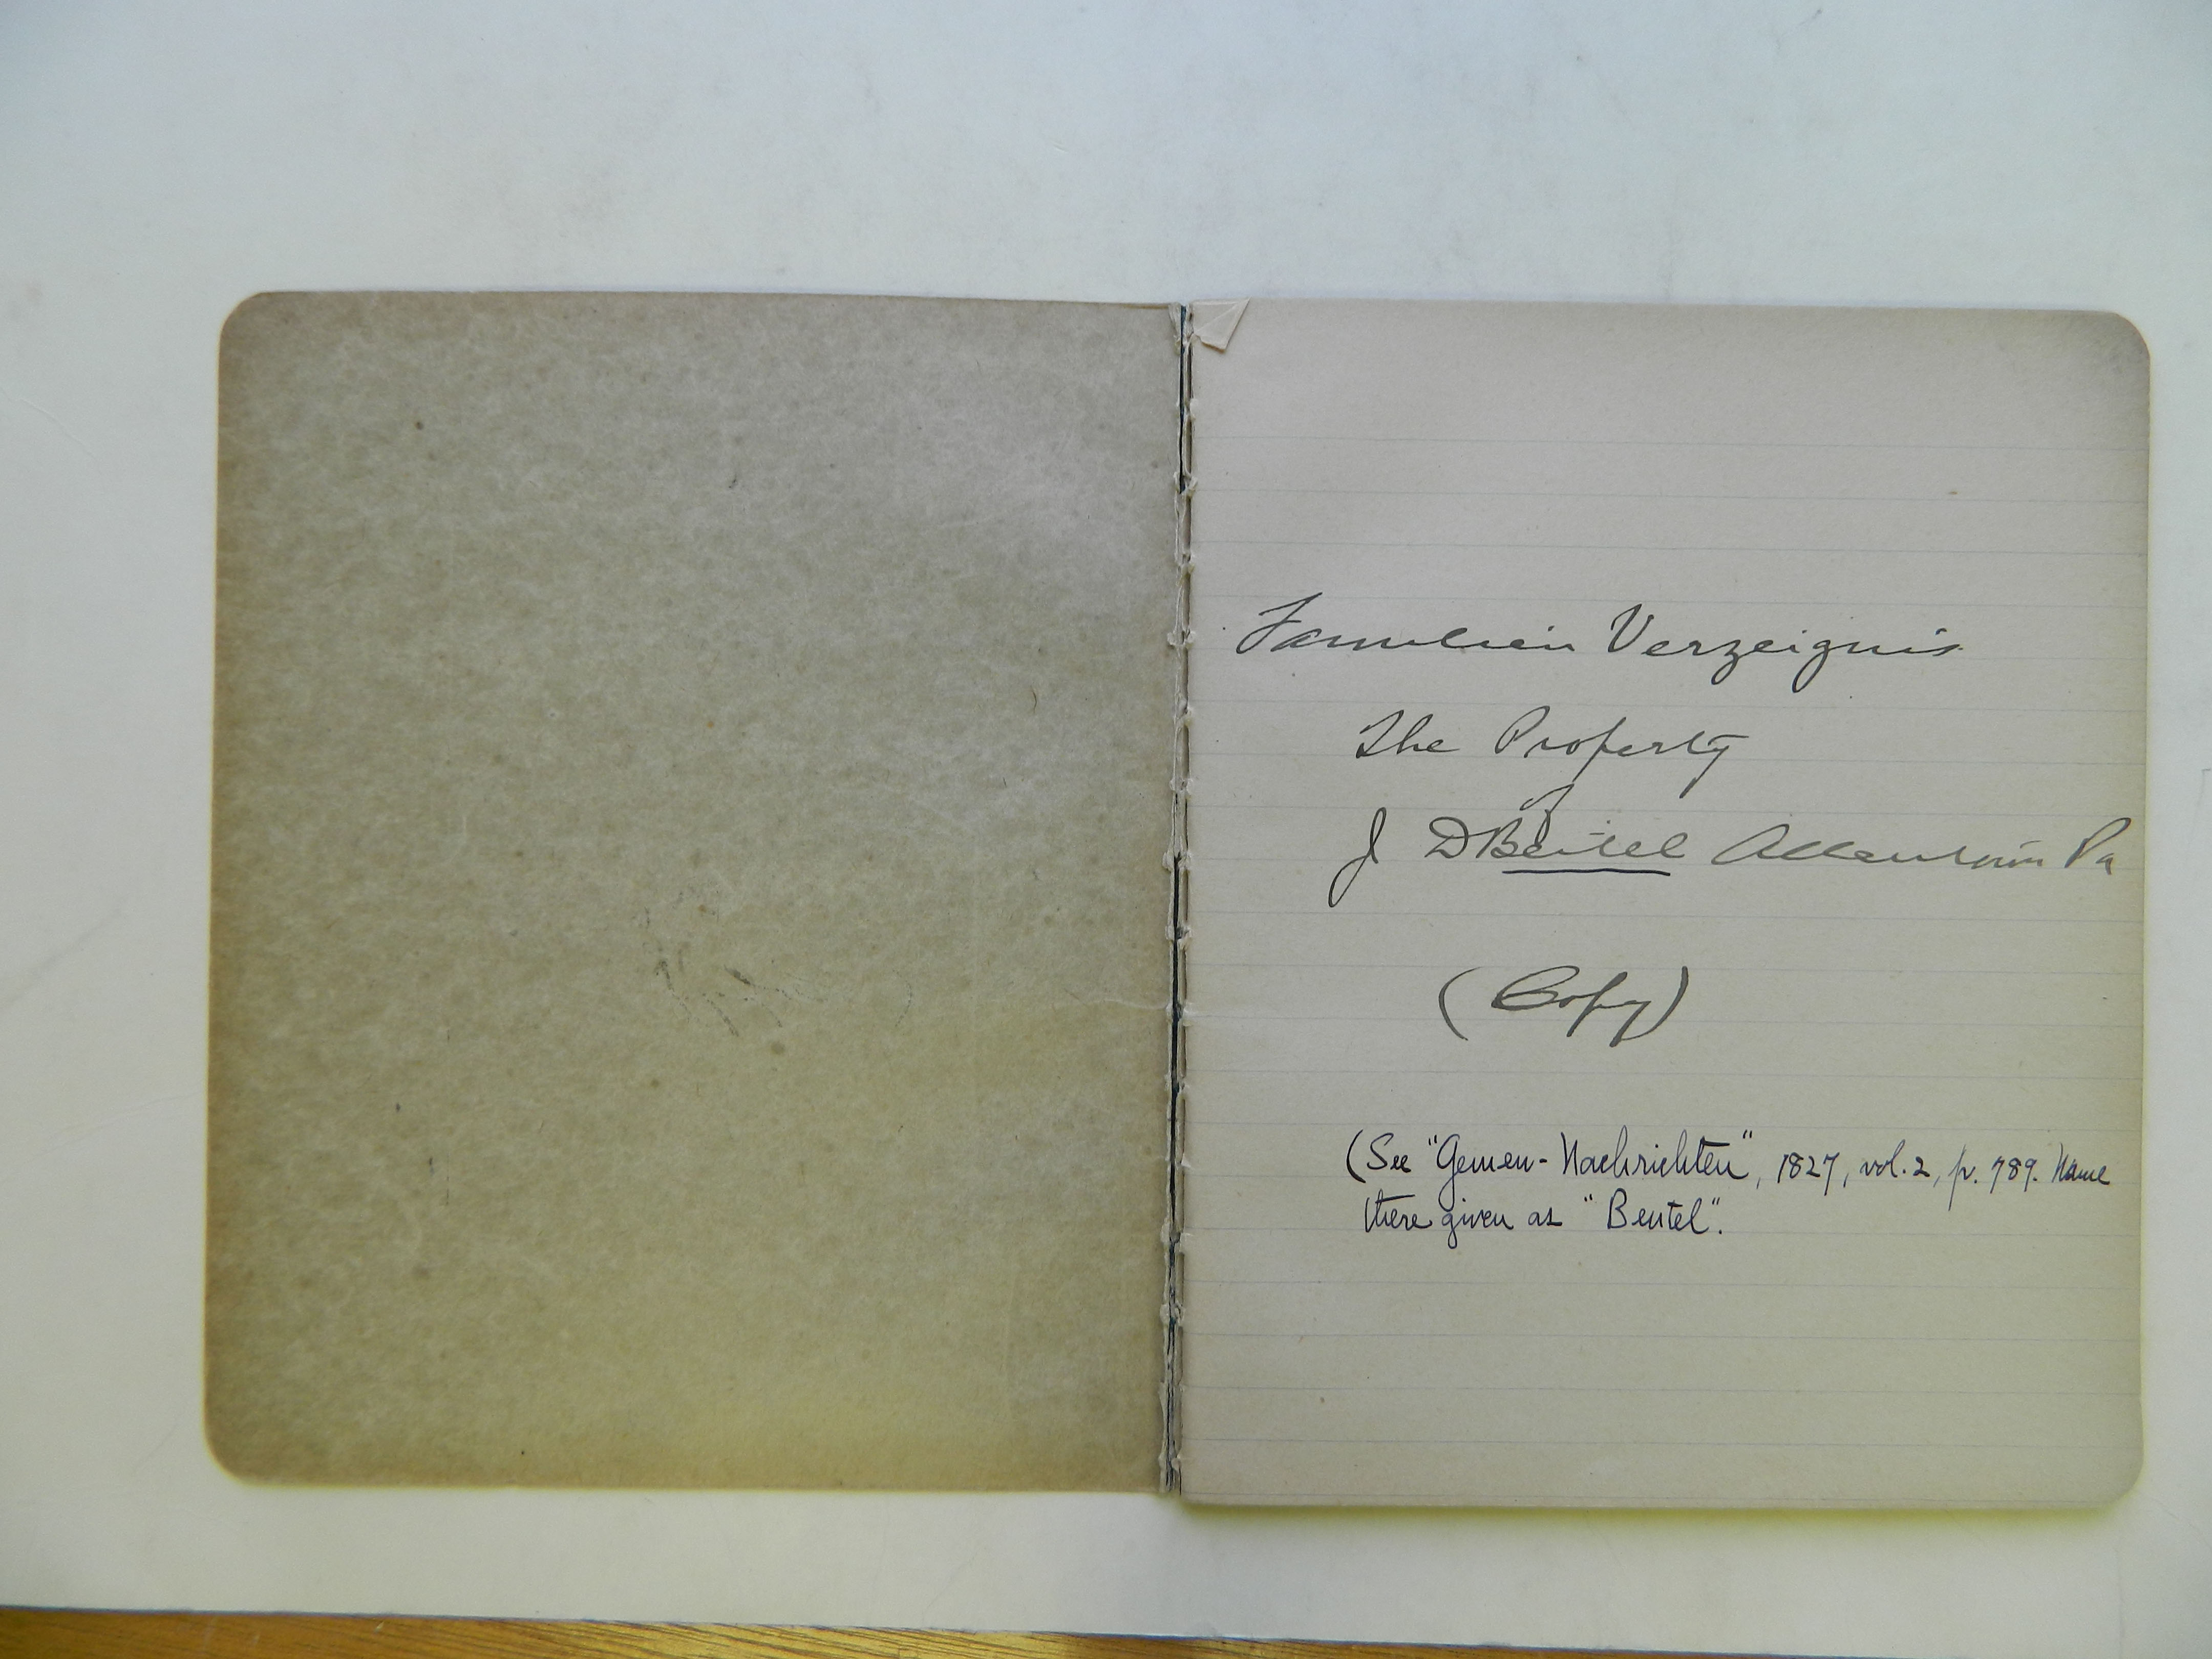 Familien Verzeignis
The Property
of
J D Beitel Allentown Pa
(Copy)
(See "Gemein-Nachrichten", 1827, vol. 2, p. 789. Name
there given as "Beutel".